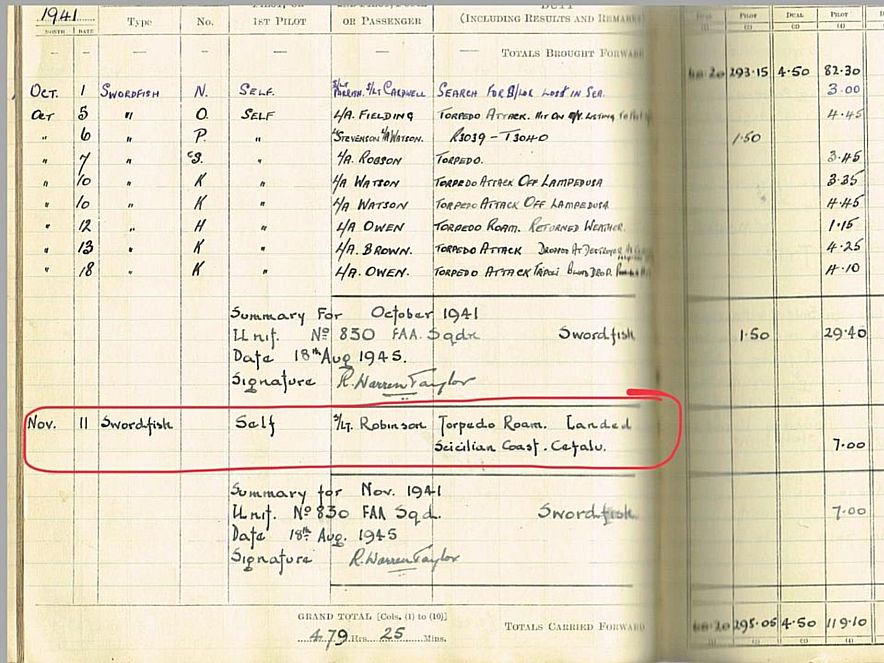 1941 Type No. 1ST PILOT OR PASSENGER (INCLUDING RESULTS AND REMARKS PILOT DUAL PILOT
MONTH DATE (1) (2) (3) (4)
— — — — — — TOTALS BROUGHT FORWARD 68.20 293.15 4.50 82.30
OCT. 1 SWORDFISH N. SELF. S/LT PARRISH. S/LT CARDWELL SEARCH FOR LOST IN SEA. 3.00
OCT 5 " O. SELF L/A. FIELDING TORPEDO ATTACK. HIT ON M/V. LISTING TO 4.45
" 6 " P. " STEVENSON L/A WATSON. R3039 – T3040 1.50
" 7 " S. " L/A. ROBSON TORPEDO. 3.45
" 10 " K " L/A WATSON TORPEDO ATTACK OFF LAMPEDUSA 3.35
" 10 " K " L/A WATSON TORPEDO ATTACK OFF LAMPEDUSA. 4.45
" 12 " H " L/A OWEN TORPEDO ROAM. RETURNED WEATHER. 1.15
" 13 " K " L/A. BROWN. TORPEDO ATTACK DROPPED AT DESTROYER 4.25
" 18 " K " L/A. OWEN. TORPEDO ATTACK DROP. 4.10
Summary For October 1941
Unit. No 830 FAA. Sqdn Swordfish 1.50 29.40
Date 18th Aug 1945.
Signature R. Warren Taylor
Nov. 11 Swordfish Self S/LT. Robinson Torpedo Roam. Landed
Scicilian Coast. Cefalu. 7.00
Summary for Nov. 1941
Unit. No 830 FAA Sqd. Swordfish. 7.00
Date 18th Aug. 1945
Signature R. Warren Taylor
GRAND TOTAL [Cols. (1) to (10)]
479 Hrs. 25 Mins.
TOTALS CARRIED FORWARD 68.20 295.05 4.50 119.10
(1) (2) (3) (4)